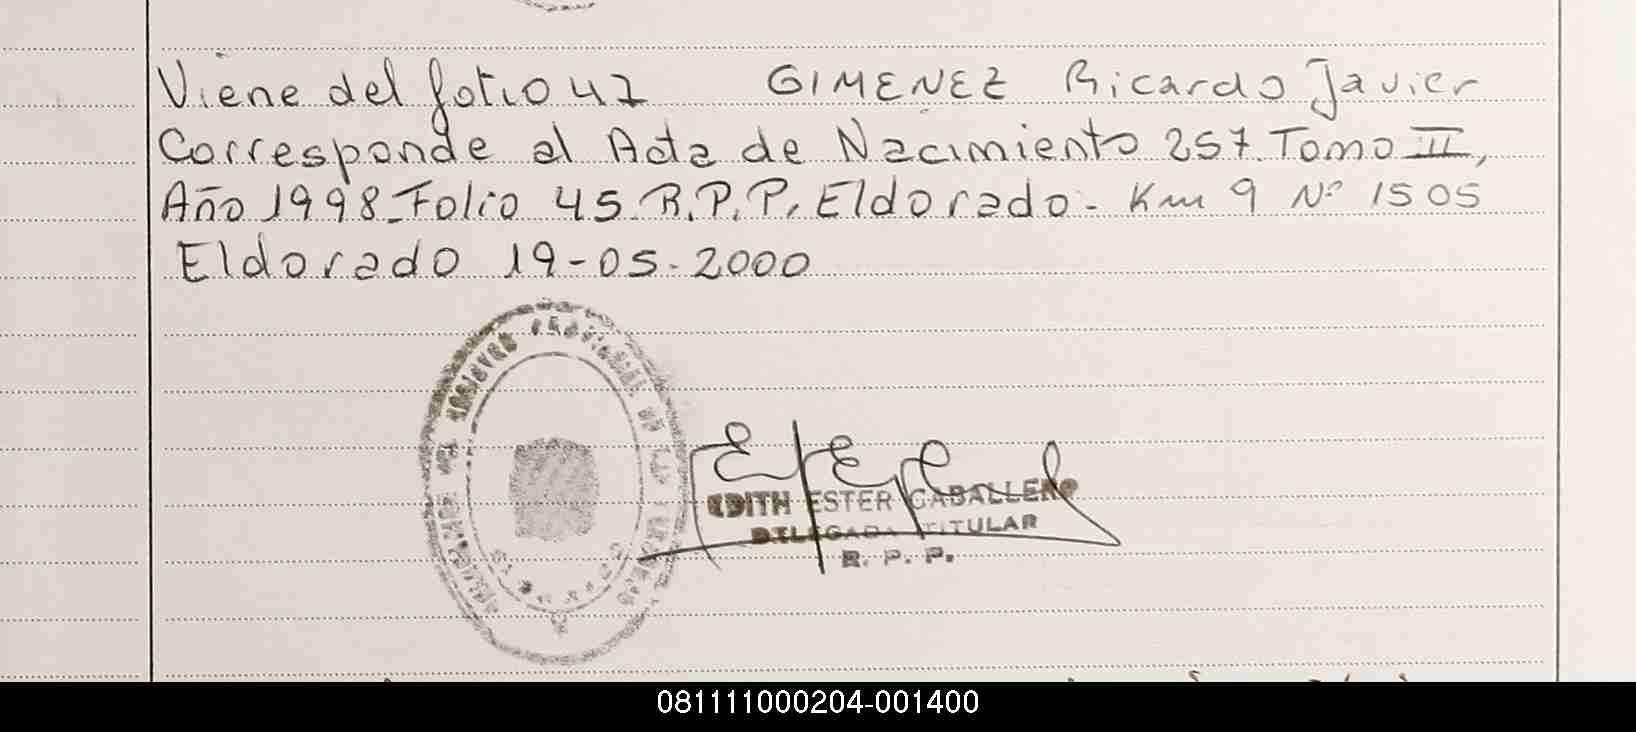 Viene del folio 47 GIMENEZ Ricardo Javier
Corresponde al Acta de Nacimiento 257. Tomo II,
Año 1998-Folio 45. R.P.P. Eldorado - Km 9 Nº 1505
Eldorado 19-05-2000
EDITH ESTER CABALLERO
DELEGADA TITULAR
R. P. P.
081111000204-001400